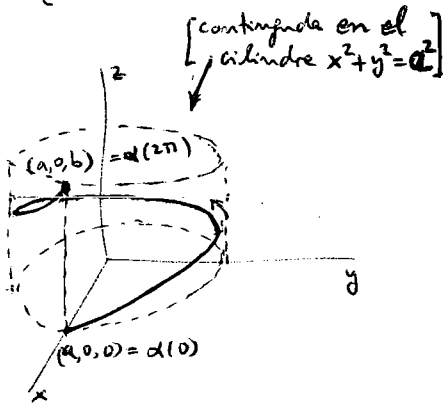 [continguda en el
cilindre x²+y²=a²]
z
(a,0,b) = α(2π)
y
(a,0,0) = α(0)
x